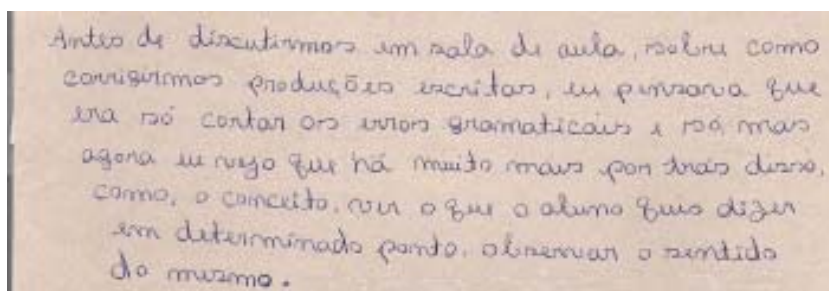 Antes de discutirmos em sala de aula, sobre como
corrigirmos produções escritas, eu pensava que
era só contar os erros gramaticais e só, mas
agora eu vejo que há muito mais por trás disso,
como, o conceito, ver o que o aluno quis dizer
em determinado ponto, observar o sentido
do mesmo.